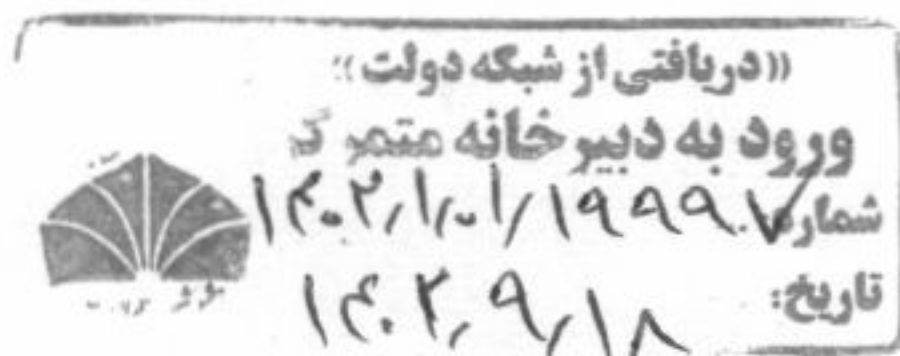 «دریافتی از شبکه دولت»
ورود به دبیرخانه متمرکز
شماره: ۱۴۰۲/۱۰۱/۱۹۹۹۰۷
تاریخ: ۱۴۰۲/۹/۱۸